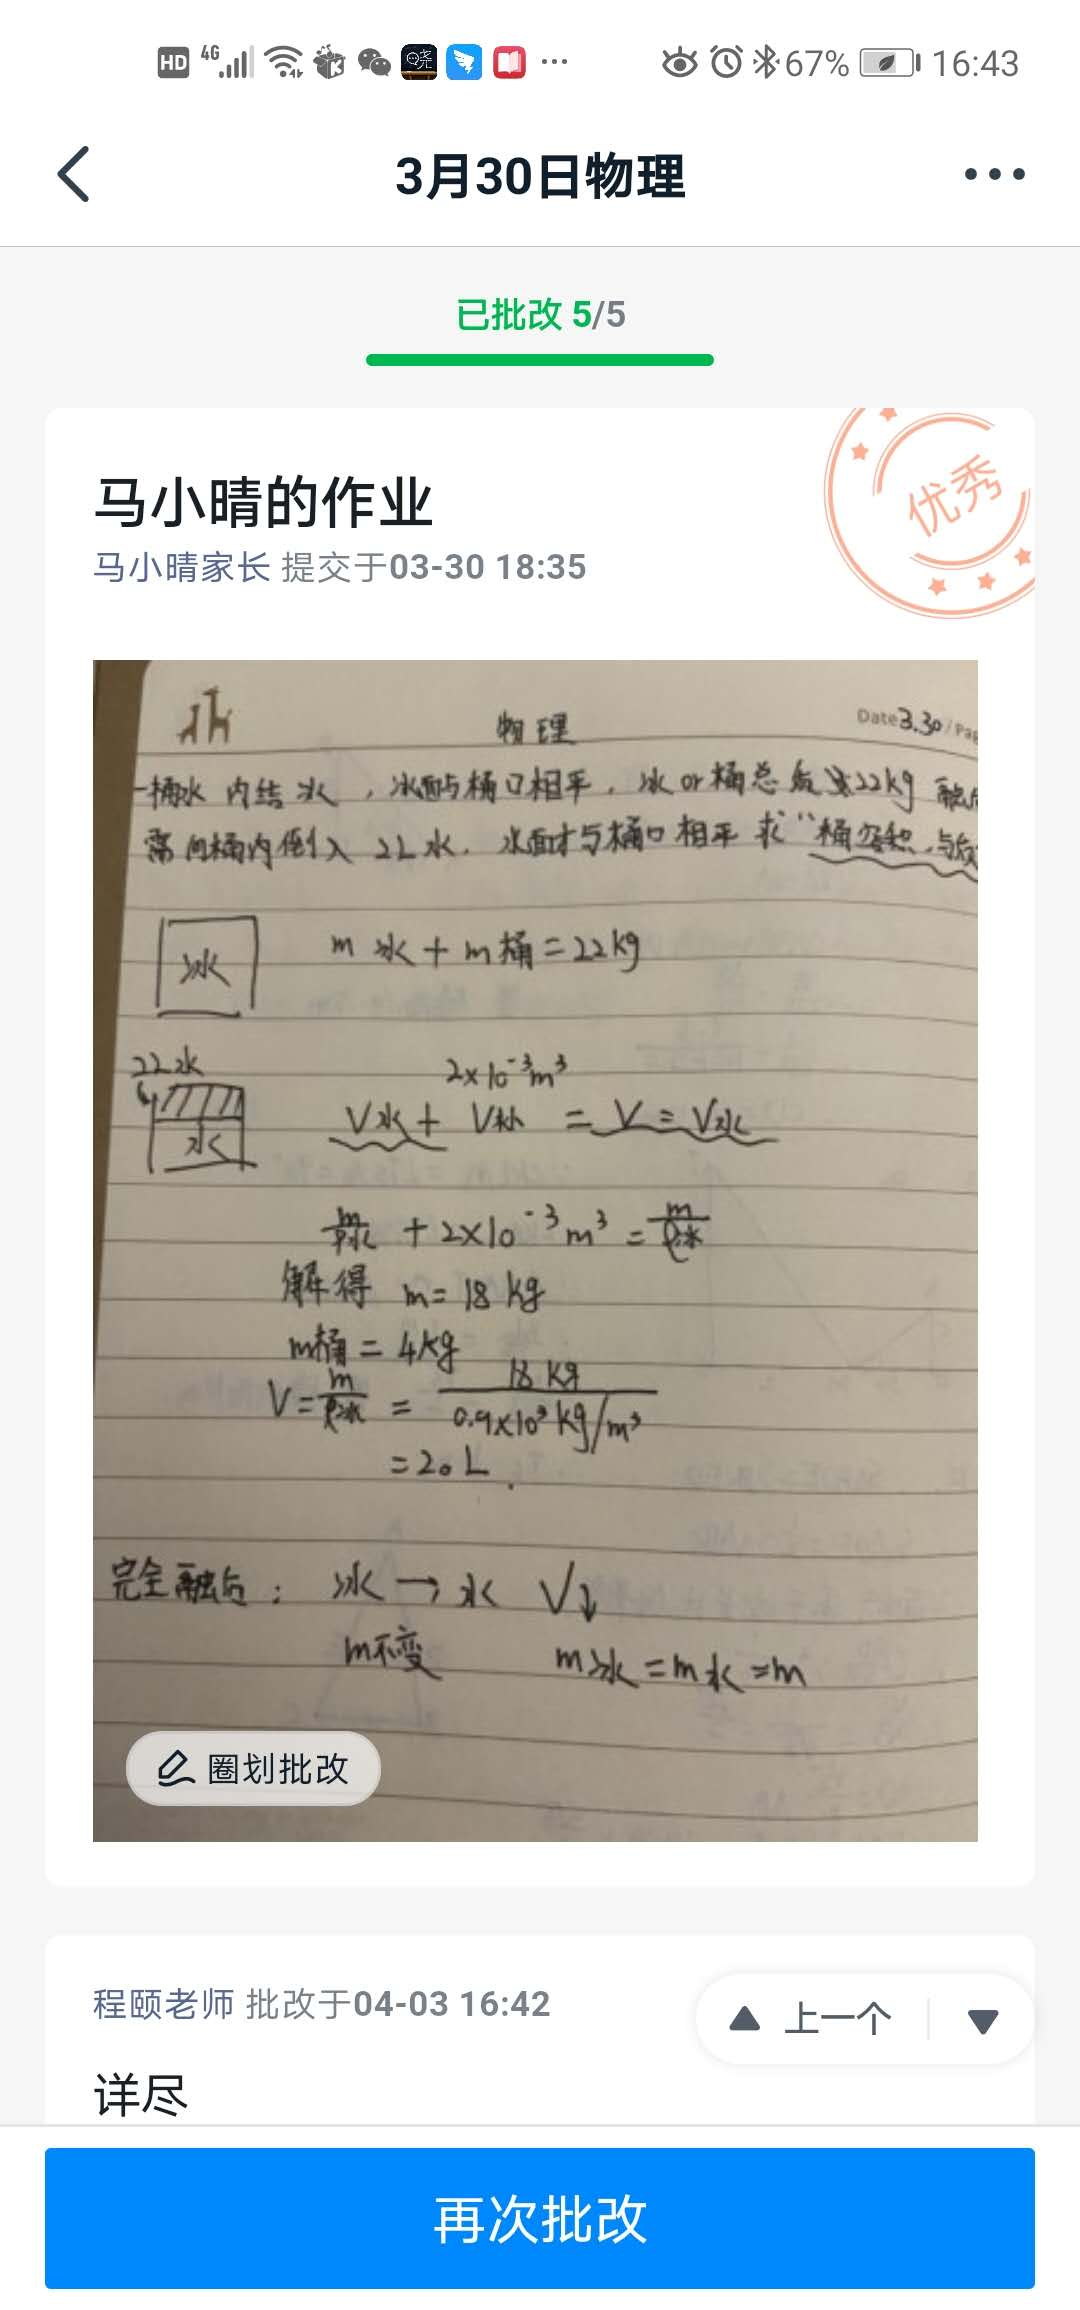 HD 4G 67% 16:43
3月30日物理
已批改 5/5
马小晴的作业
优秀
马小晴家长 提交于03-30 18:35
物理
Date 3.30 / Pag
一桶水 内结冰 ，冰面与桶口相平，冰 or 桶总 22kg 融后
需向桶内倒入 2L 水．水面才与桶口相平 求 桶容积，与
冰
m冰 + m桶 = 22kg
2L水
水
2×10⁻³m³
V水 + V补 = V = V冰
m/ρ水 + 2×10⁻³m³ = m/ρ冰
解得 m = 18 kg
m桶 = 4kg
V = m/ρ冰 = 18 kg/0.9×10³kg/m³
= 20L．
完全融后： 冰 → 水 V↓
m不变 m冰 = m水 = m
圈划批改
程颐老师 批改于04-03 16:42
上一个
详尽
再次批改